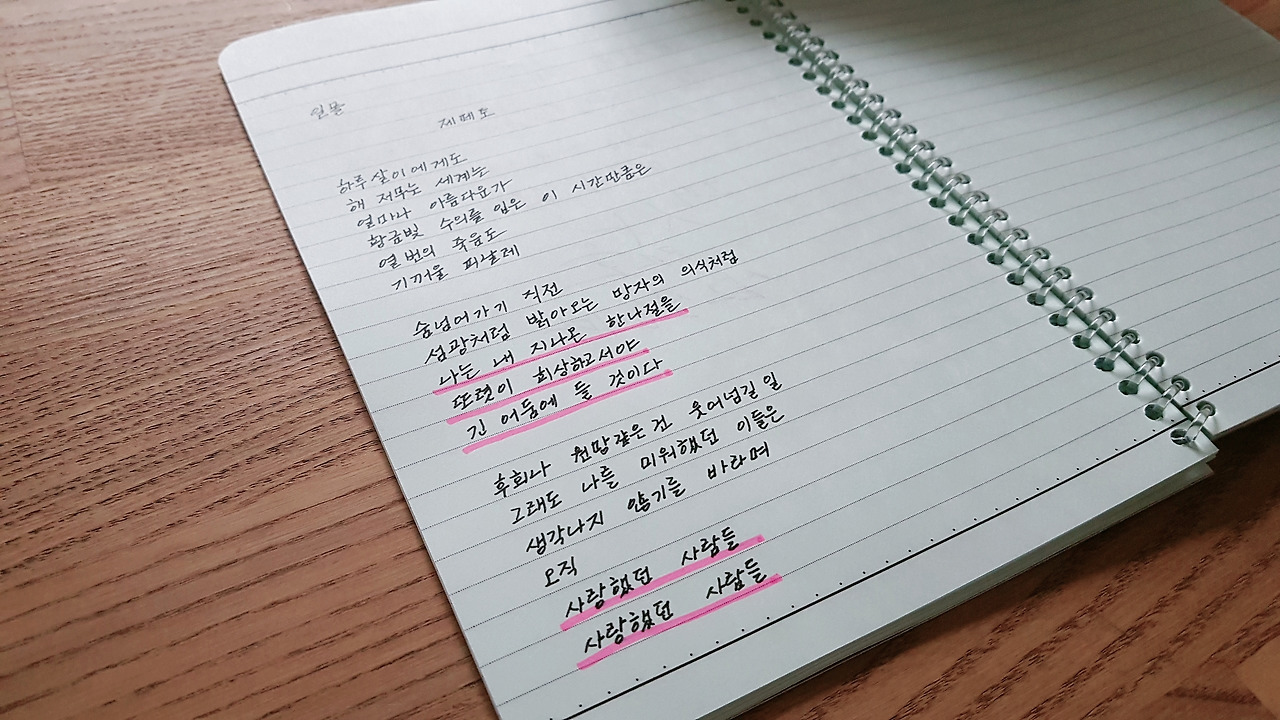 일몰
제페토
하루살이에게도
해 저무는 세계는
얼마나 아름다요가
황금빛 수의를 입은 이 시간만큼은
열 번의 죽음도
기꺼울 피날레
숨넘어가기 직전
섬광처럼 밝아오는 망자의 의식처럼
나는 내 지나온 한나절을
또렷이 회상하고서야
긴 어둠에 들 것이다
후회나 원망같은 건 웃어넘길 일
그래도 나를 미워했던 이들은
생각나지 않기를 바라며
오직
사랑했던 사람들
사랑했던 사람들